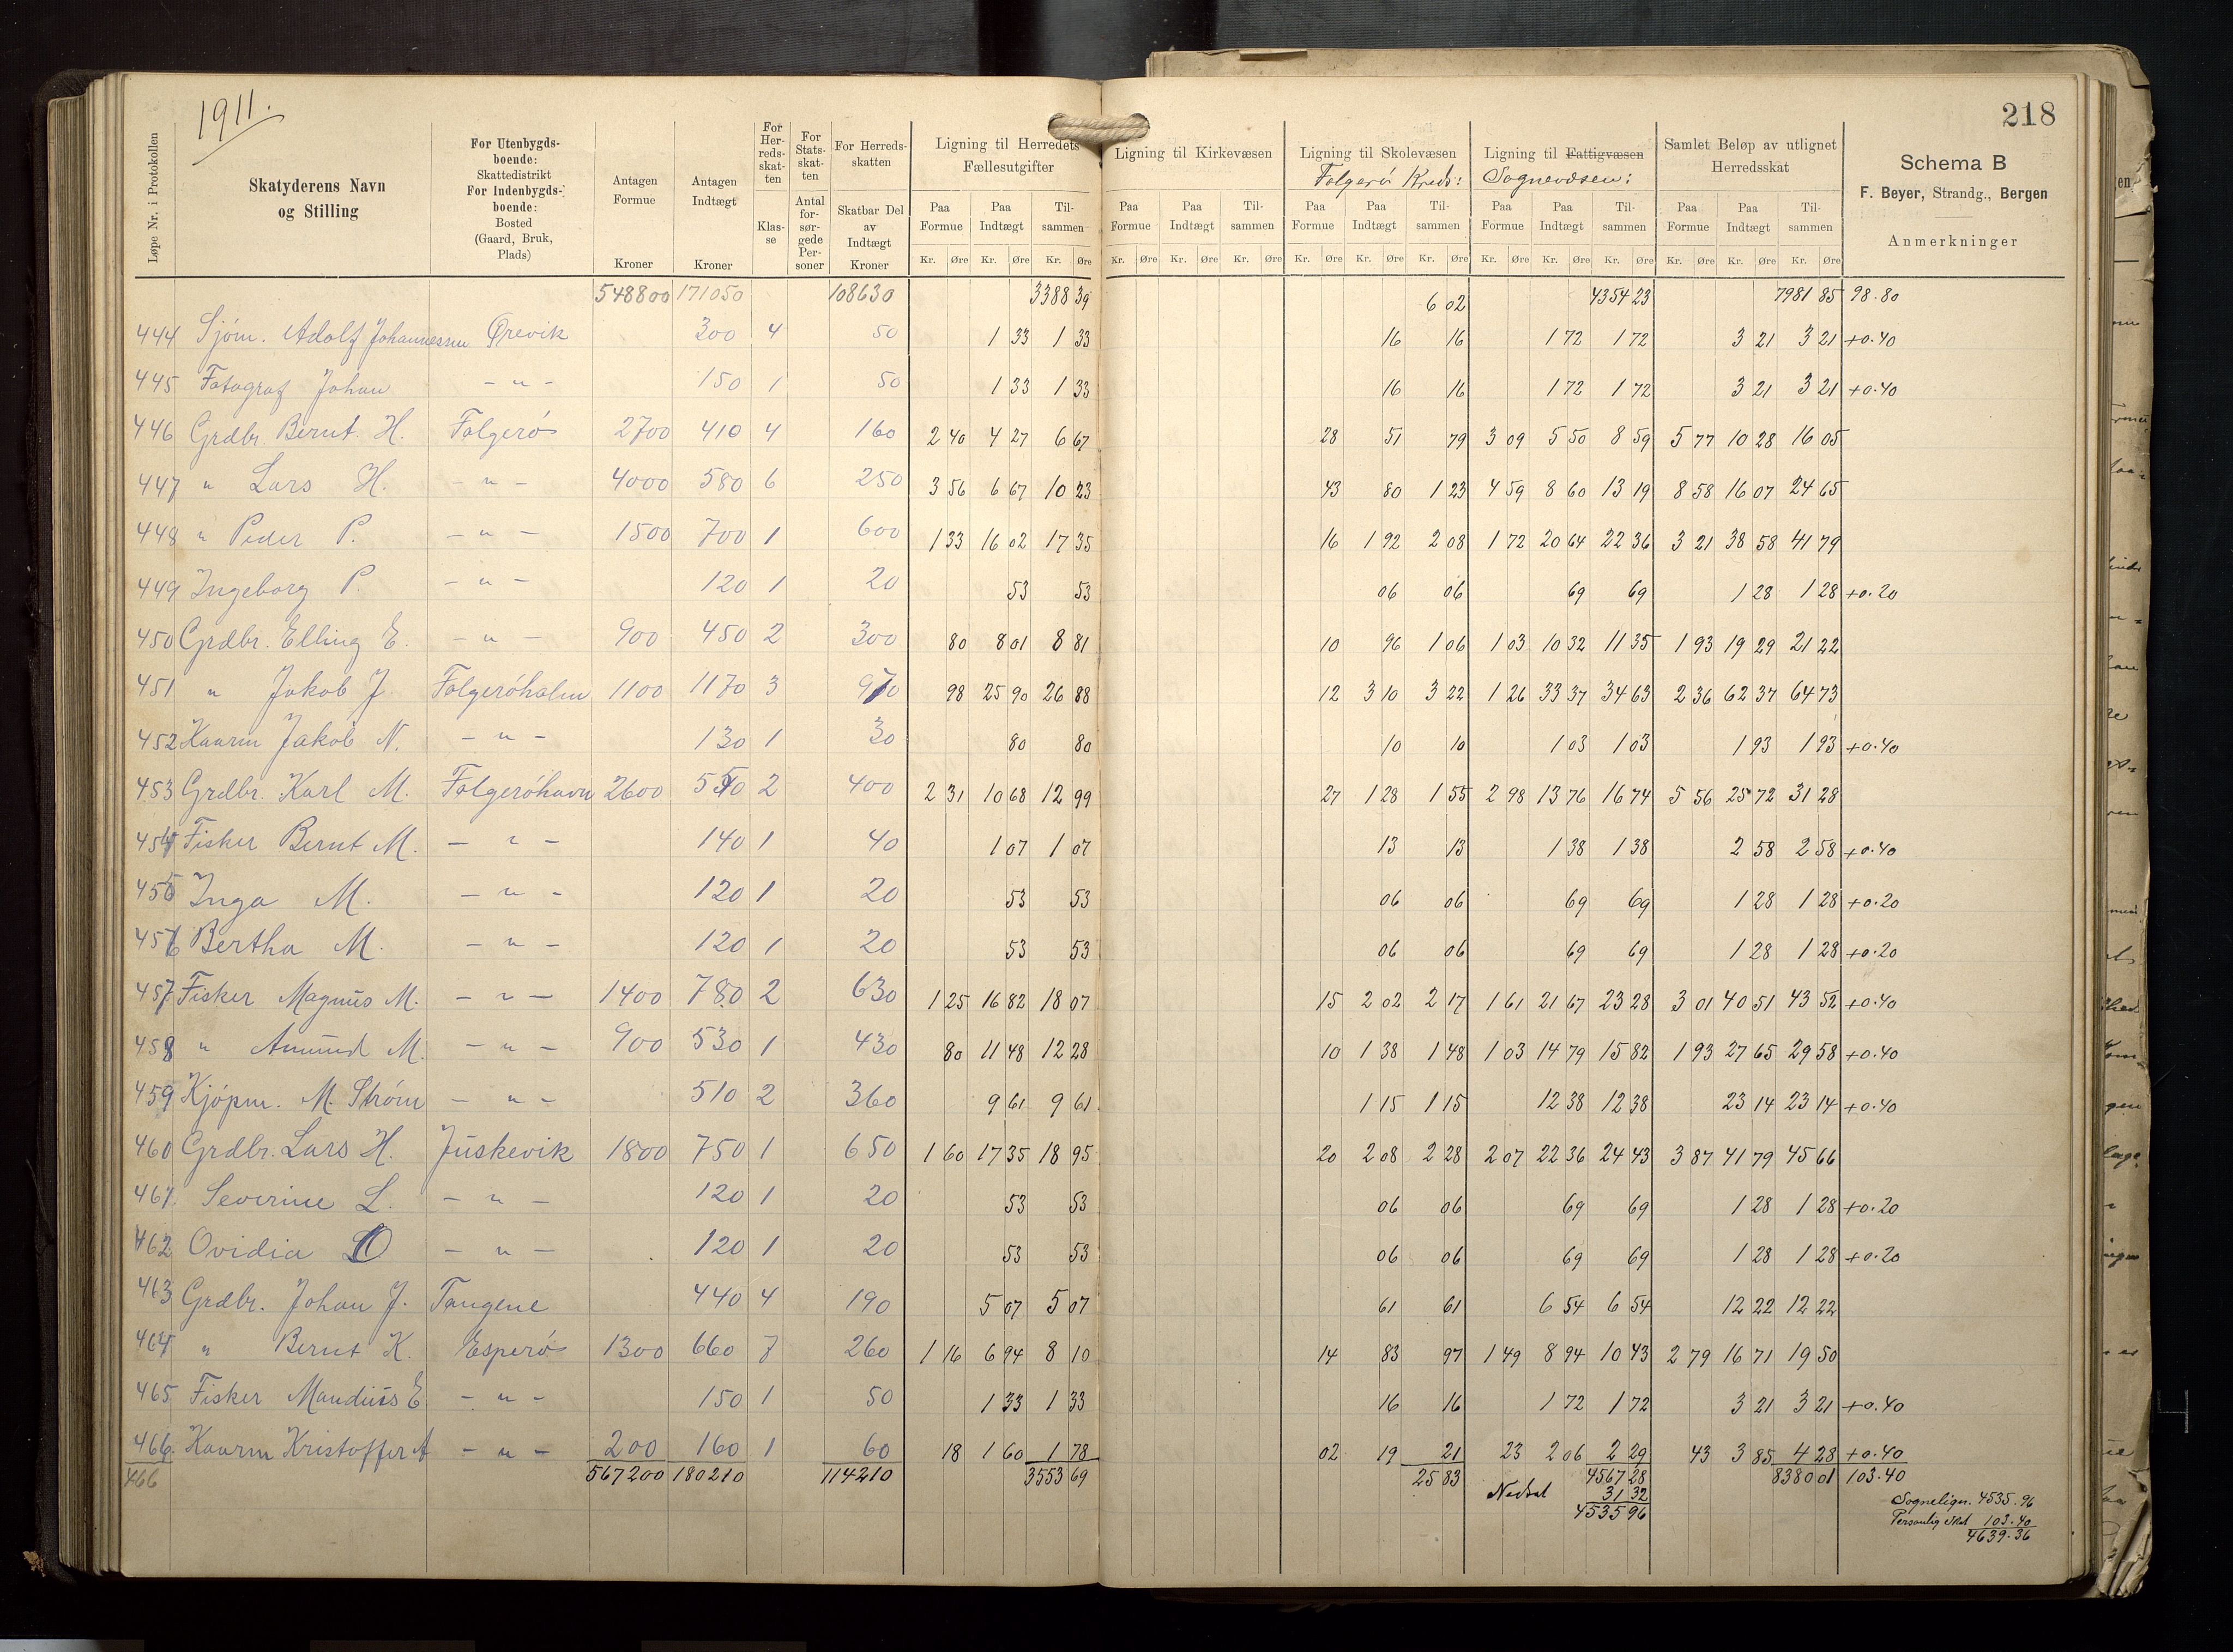 1911.
218
Løpe Nr. i Protokollen
Skatyderens Navn og Stilling
For Utenbygdsboende: Skattedistrikt For Indenbygdsboende: Bosted (Gaard, Bruk, Plads)
Antagen Formue Kroner
Antagen Indtægt Kroner
For Herredsskatten Klasse
For Statsskatten Antal forsørgede Personer
For Herredsskatten Skatbar Del av Indtægt Kroner
Ligning til Herredets Fællesutgifter
Ligning til Kirkevæsen
Ligning til Skolevæsen Folgerø Kreds:
Ligning til Fattigvæsen Sognevæsen:
Samlet Beløp av utlignet Herredsskat
Schema B
F. Beyer, Strandg., Bergen
Anmerkninger
Paa Formue Paa Indtægt Tilsammen Paa Formue Paa Indtægt Tilsammen Paa Formue Paa Indtægt Tilsammen Paa Formue Paa Indtægt Tilsammen Paa Formue Paa Indtægt Tilsammen
Kr. Øre Kr. Øre Kr. Øre Kr. Øre Kr. Øre Kr. Øre Kr. Øre Kr. Øre Kr. Øre Kr. Øre Kr. Øre Kr. Øre Kr. Øre Kr. Øre Kr. Øre
548800 171050 108630 3388 39 6 02 4354 23 7981 85 98.80
444 Sjøm. Adolf Johannessen Ørevik 300 4 50 1 33 1 33 16 16 1 72 1 72 3 21 3 21 +0.40
445 Fotograf Johan - " - 150 1 50 1 33 1 33 16 16 1 72 1 72 3 21 3 21 +0.40
446 Grdbr. Bernt H. Folgerø 2700 410 4 160 2 40 4 27 6 67 28 51 79 3 09 5 50 8 59 5 77 10 28 16 05
447 " Lars H. - " - 4000 580 6 250 3 56 6 67 10 23 43 80 1 23 4 59 8 60 13 19 8 58 16 07 24 65
448 " Peder P. - " - 1500 700 1 600 1 33 16 02 17 35 16 1 92 2 08 1 72 20 64 22 36 3 21 38 58 41 79
449 Ingeborg P. - " - 120 1 20 53 53 06 06 69 69 1 28 1 28 +0.20
450 Grdbr. Elling E. - " - 900 450 2 300 80 8 01 8 81 10 96 1 06 1 03 10 32 11 35 1 93 19 29 21 22
451 " Jakob J. Folgerøholm 1100 1170 3 970 98 25 90 26 88 12 3 10 3 22 1 26 33 37 34 63 2 36 62 37 64 73
452 Kaarm Jakob N. - " - 130 1 30 80 80 10 10 1 03 1 03 1 93 1 93 +0.40
453 Grdbr. Karl M. Folgerøhavn 2600 550 2 400 2 31 10 68 12 99 27 1 28 1 55 2 98 13 76 16 74 5 56 25 72 31 28
454 Fisker Bernt M. - " - 140 1 40 1 07 1 07 13 13 1 38 1 38 2 58 2 58 +0.40
455 Inga M. - " - 120 1 20 53 53 06 06 69 69 1 28 1 28 +0.20
456 Bertha M. - " - 120 1 20 53 53 06 06 69 69 1 28 1 28 +0.20
457 Fisker Magnus M. - " - 1400 780 2 630 1 25 16 82 18 07 15 2 02 2 17 1 61 21 67 23 28 3 01 40 51 43 52 +0.40
458 " Amund M. - " - 900 530 1 430 80 11 48 12 28 10 1 38 1 48 1 03 14 79 15 82 1 93 27 65 29 58 +0.40
459 Kjøpm. M. Strøm - " - 510 2 360 9 61 9 61 1 15 1 15 12 38 12 38 23 14 23 14 +0.40
460 Grdbr. Lars H. Juskevik 1800 750 1 650 1 60 17 35 18 95 20 2 08 2 28 2 07 22 36 24 43 3 87 41 79 45 66
461 Severine L. - " - 120 1 20 53 53 06 06 69 69 1 28 1 28 +0.20
462 Ovidia O - " - 120 1 20 53 53 06 06 69 69 1 28 1 28 +0.20
463 Grdbr. Johan J. Tangene 440 4 190 5 07 5 07 61 61 6 54 6 54 12 22 12 22
464 " Bernt K. Esperø 1300 660 7 260 1 16 6 94 8 10 14 83 97 1 49 8 94 10 43 2 79 16 71 19 50
465 Fisker Mandius E. - " - 150 1 50 1 33 1 33 16 16 1 72 1 72 3 21 3 21 +0.40
466 Kaarm Kristoffer A - " - 200 160 1 60 18 1 60 1 78 02 19 21 23 2 06 2 29 43 3 85 4 28 +0.40
466 567200 180210 114210 3553 69 25 83 4567 28 8380 01 103.40
Nedsat 31 32
4535 96
Sognelign. 4535.96
Personlig skat 103.40
4639.36